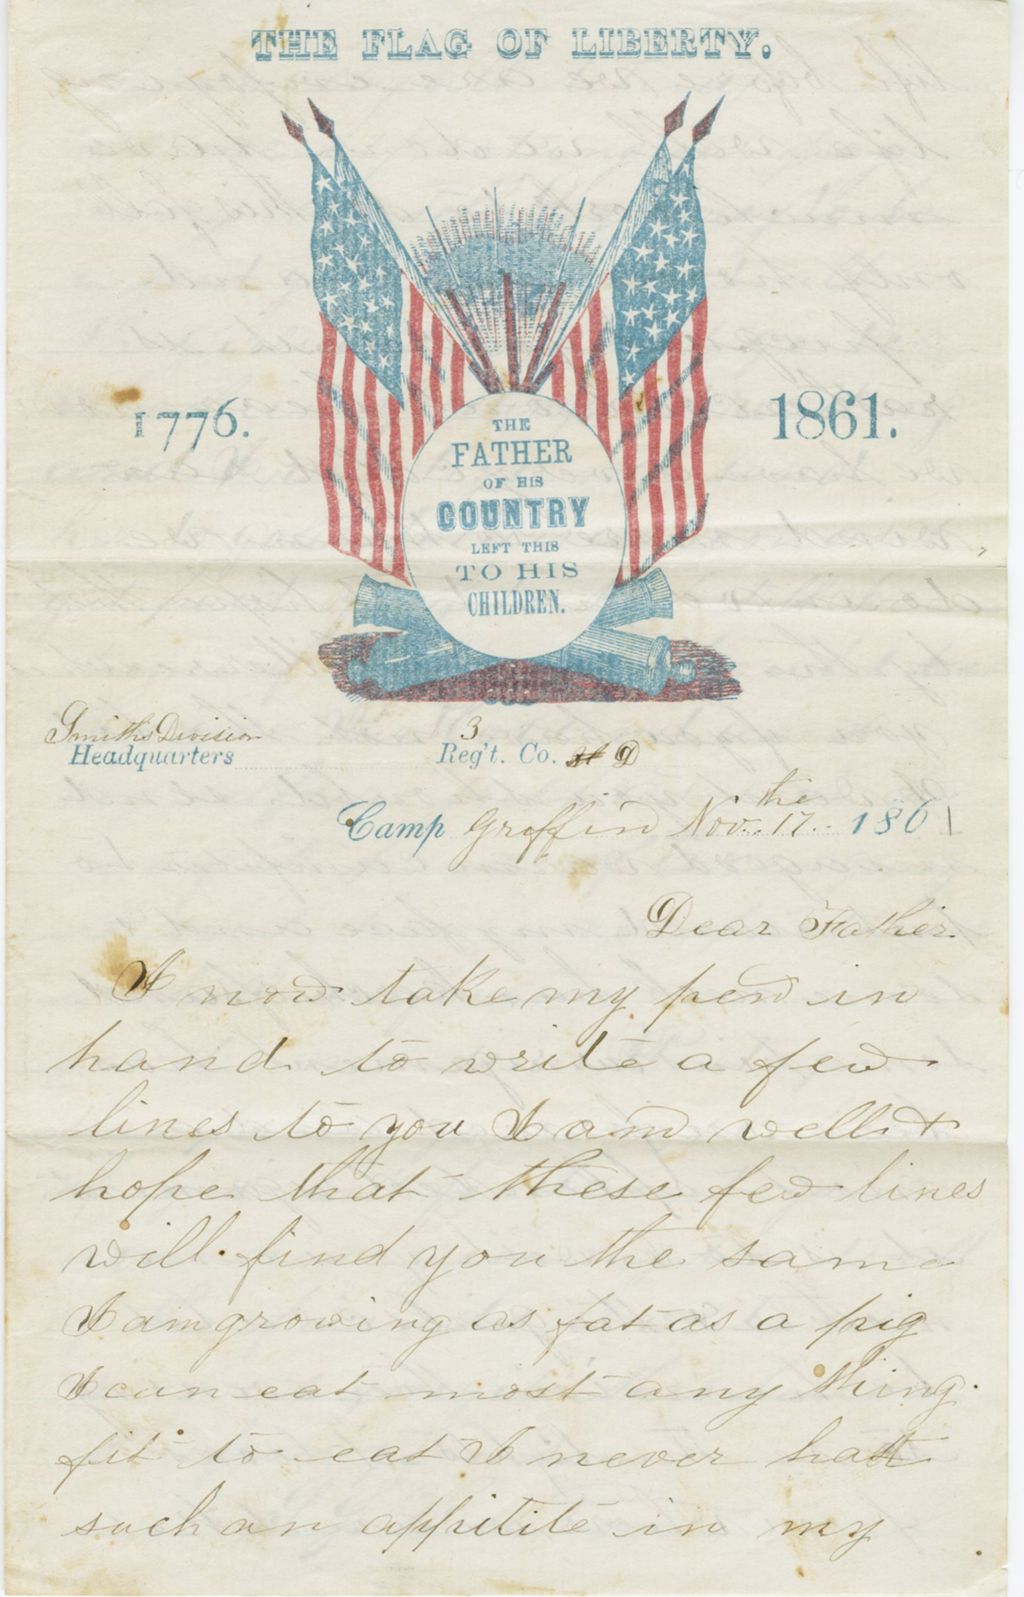 THE FLAG OF LIBERTY.
1776.
1861.
THE
FATHER
OF HIS
COUNTRY
LEFT THIS
TO HIS
CHILDREN.
Smiths Division
Headquarters 3 Reg't. Co. D
Camp Griffin Nov. the 17. 1861
Dear Father.
I now take my pen in
hand to write a few
lines to you I am well &
hope that these few lines
will find you the same
I am growing as fat as a pig
I can eat most any thing.
fit to eat I never had
such an appitite in my